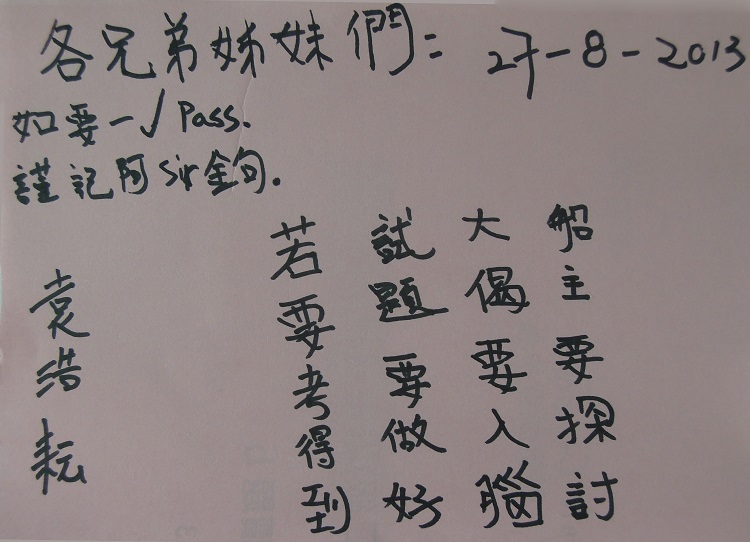 各兄弟姊妹們: 27-8-2013
如要一√ Pass.
謹記阿Sir金句.
船主要探討
大偈要入腦
試題要做好
若要考得到
袁浩耘